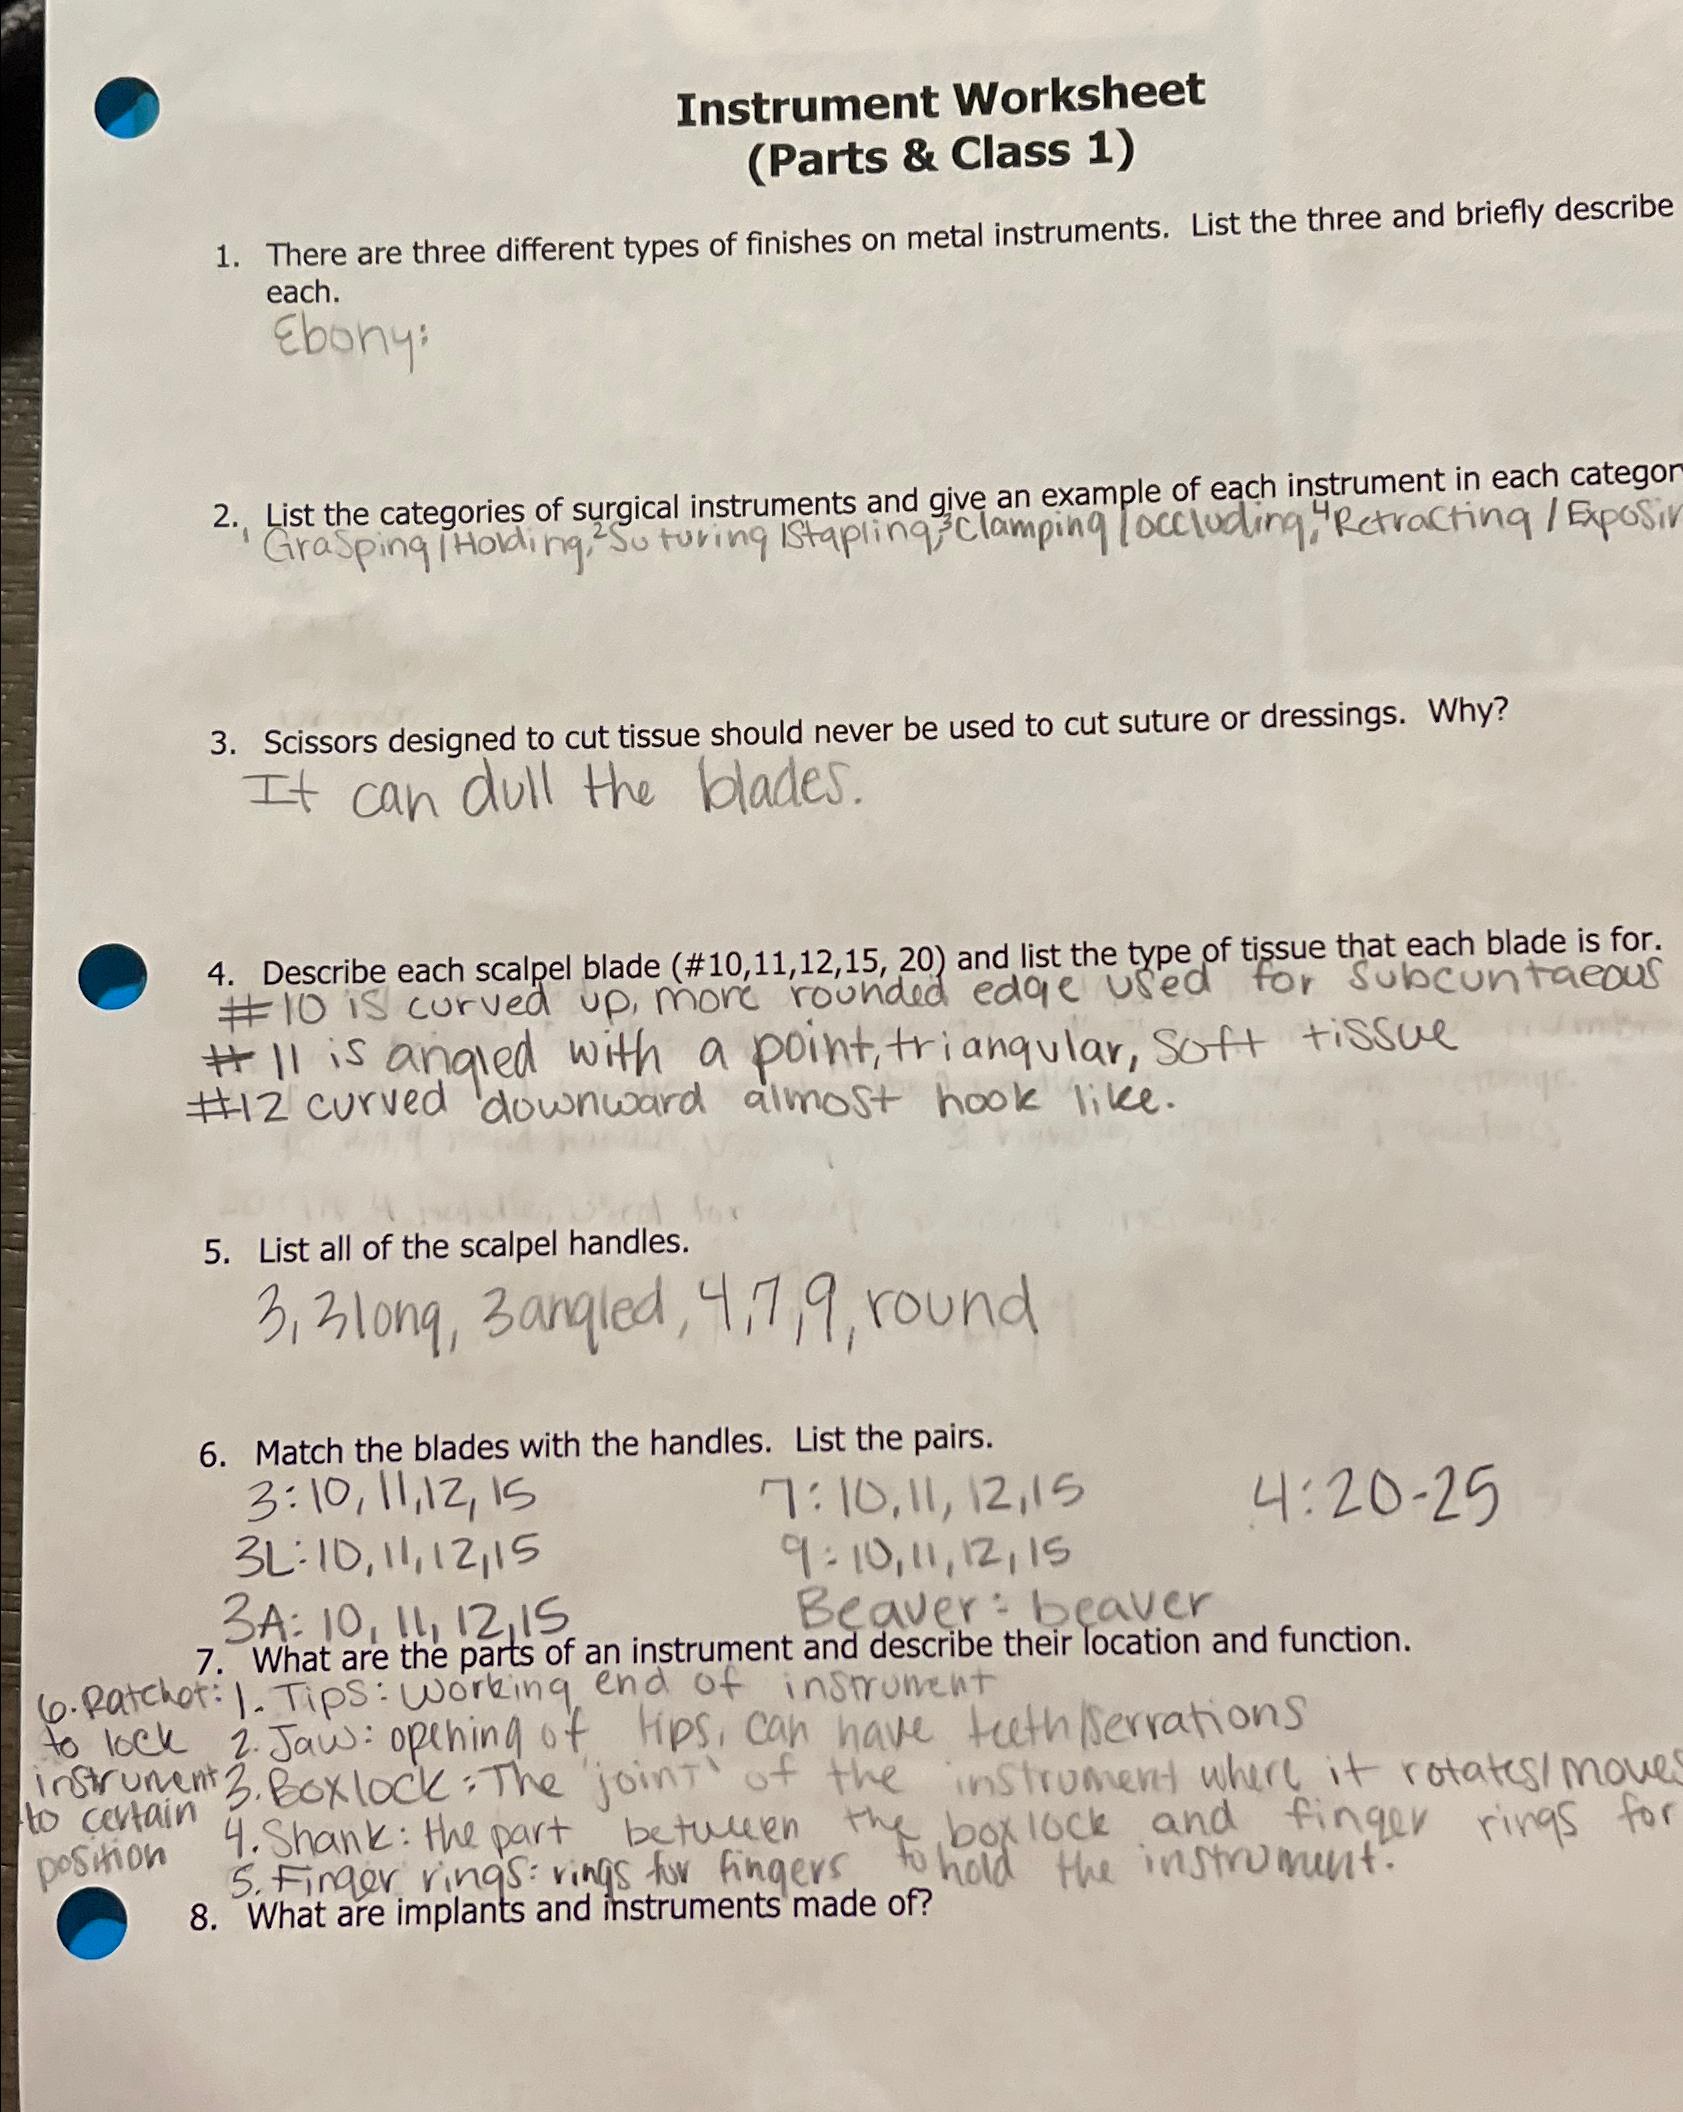 Instrument Worksheet
(Parts & Class 1)
1. There are three different types of finishes on metal instruments. List the three and briefly describe
each.
Ebony:
2. List the categories of surgical instruments and give an example of each instrument in each categor
1 Grasping/Holding, 2 Suturing/Stapling, 3 Clamping/occluding, 4 Retracting/Exposin
3. Scissors designed to cut tissue should never be used to cut suture or dressings. Why?
It can dull the blades.
4. Describe each scalpel blade (#10,11,12,15, 20) and list the type of tissue that each blade is for.
#10 is curved up, more rounded edge used for subcuntaeous
#11 is angled with a point, triangular, soft tissue
#12 curved downward almost hook like.
5. List all of the scalpel handles.
3, 3long, 3angled, 4,7,9, round
6. Match the blades with the handles. List the pairs.
3:10,11,12,15 7:10,11,12,15 4:20-25
3L:10,11,12,15 9:10,11,12,15
3A:10,11,12,15 Beaver: beaver
7. What are the parts of an instrument and describe their location and function.
6. Ratchet: 1. Tips: working end of instrument
to lock 2. Jaw: opening of tips, can have teeth/serrations
instrument 3. Boxlock: The "joint" of the instrument where it rotates/moves
to certain 4. Shank: the part between the boxlock and finger rings for
position 5. Finger rings: rings for fingers to hold the instrument.
8. What are implants and instruments made of?